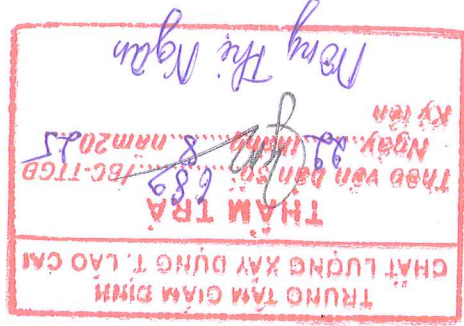 TRUNG TÂM GIÁM ĐỊNH
CHẤT LƯỢNG XÂY DỰNG T. LÀO CAI
THẨM TRA
Theo văn bản số: 689 /BC-TTGĐ
Ngày 22 tháng 8 năm 2025
Ký tên
Nông Thị Ngân